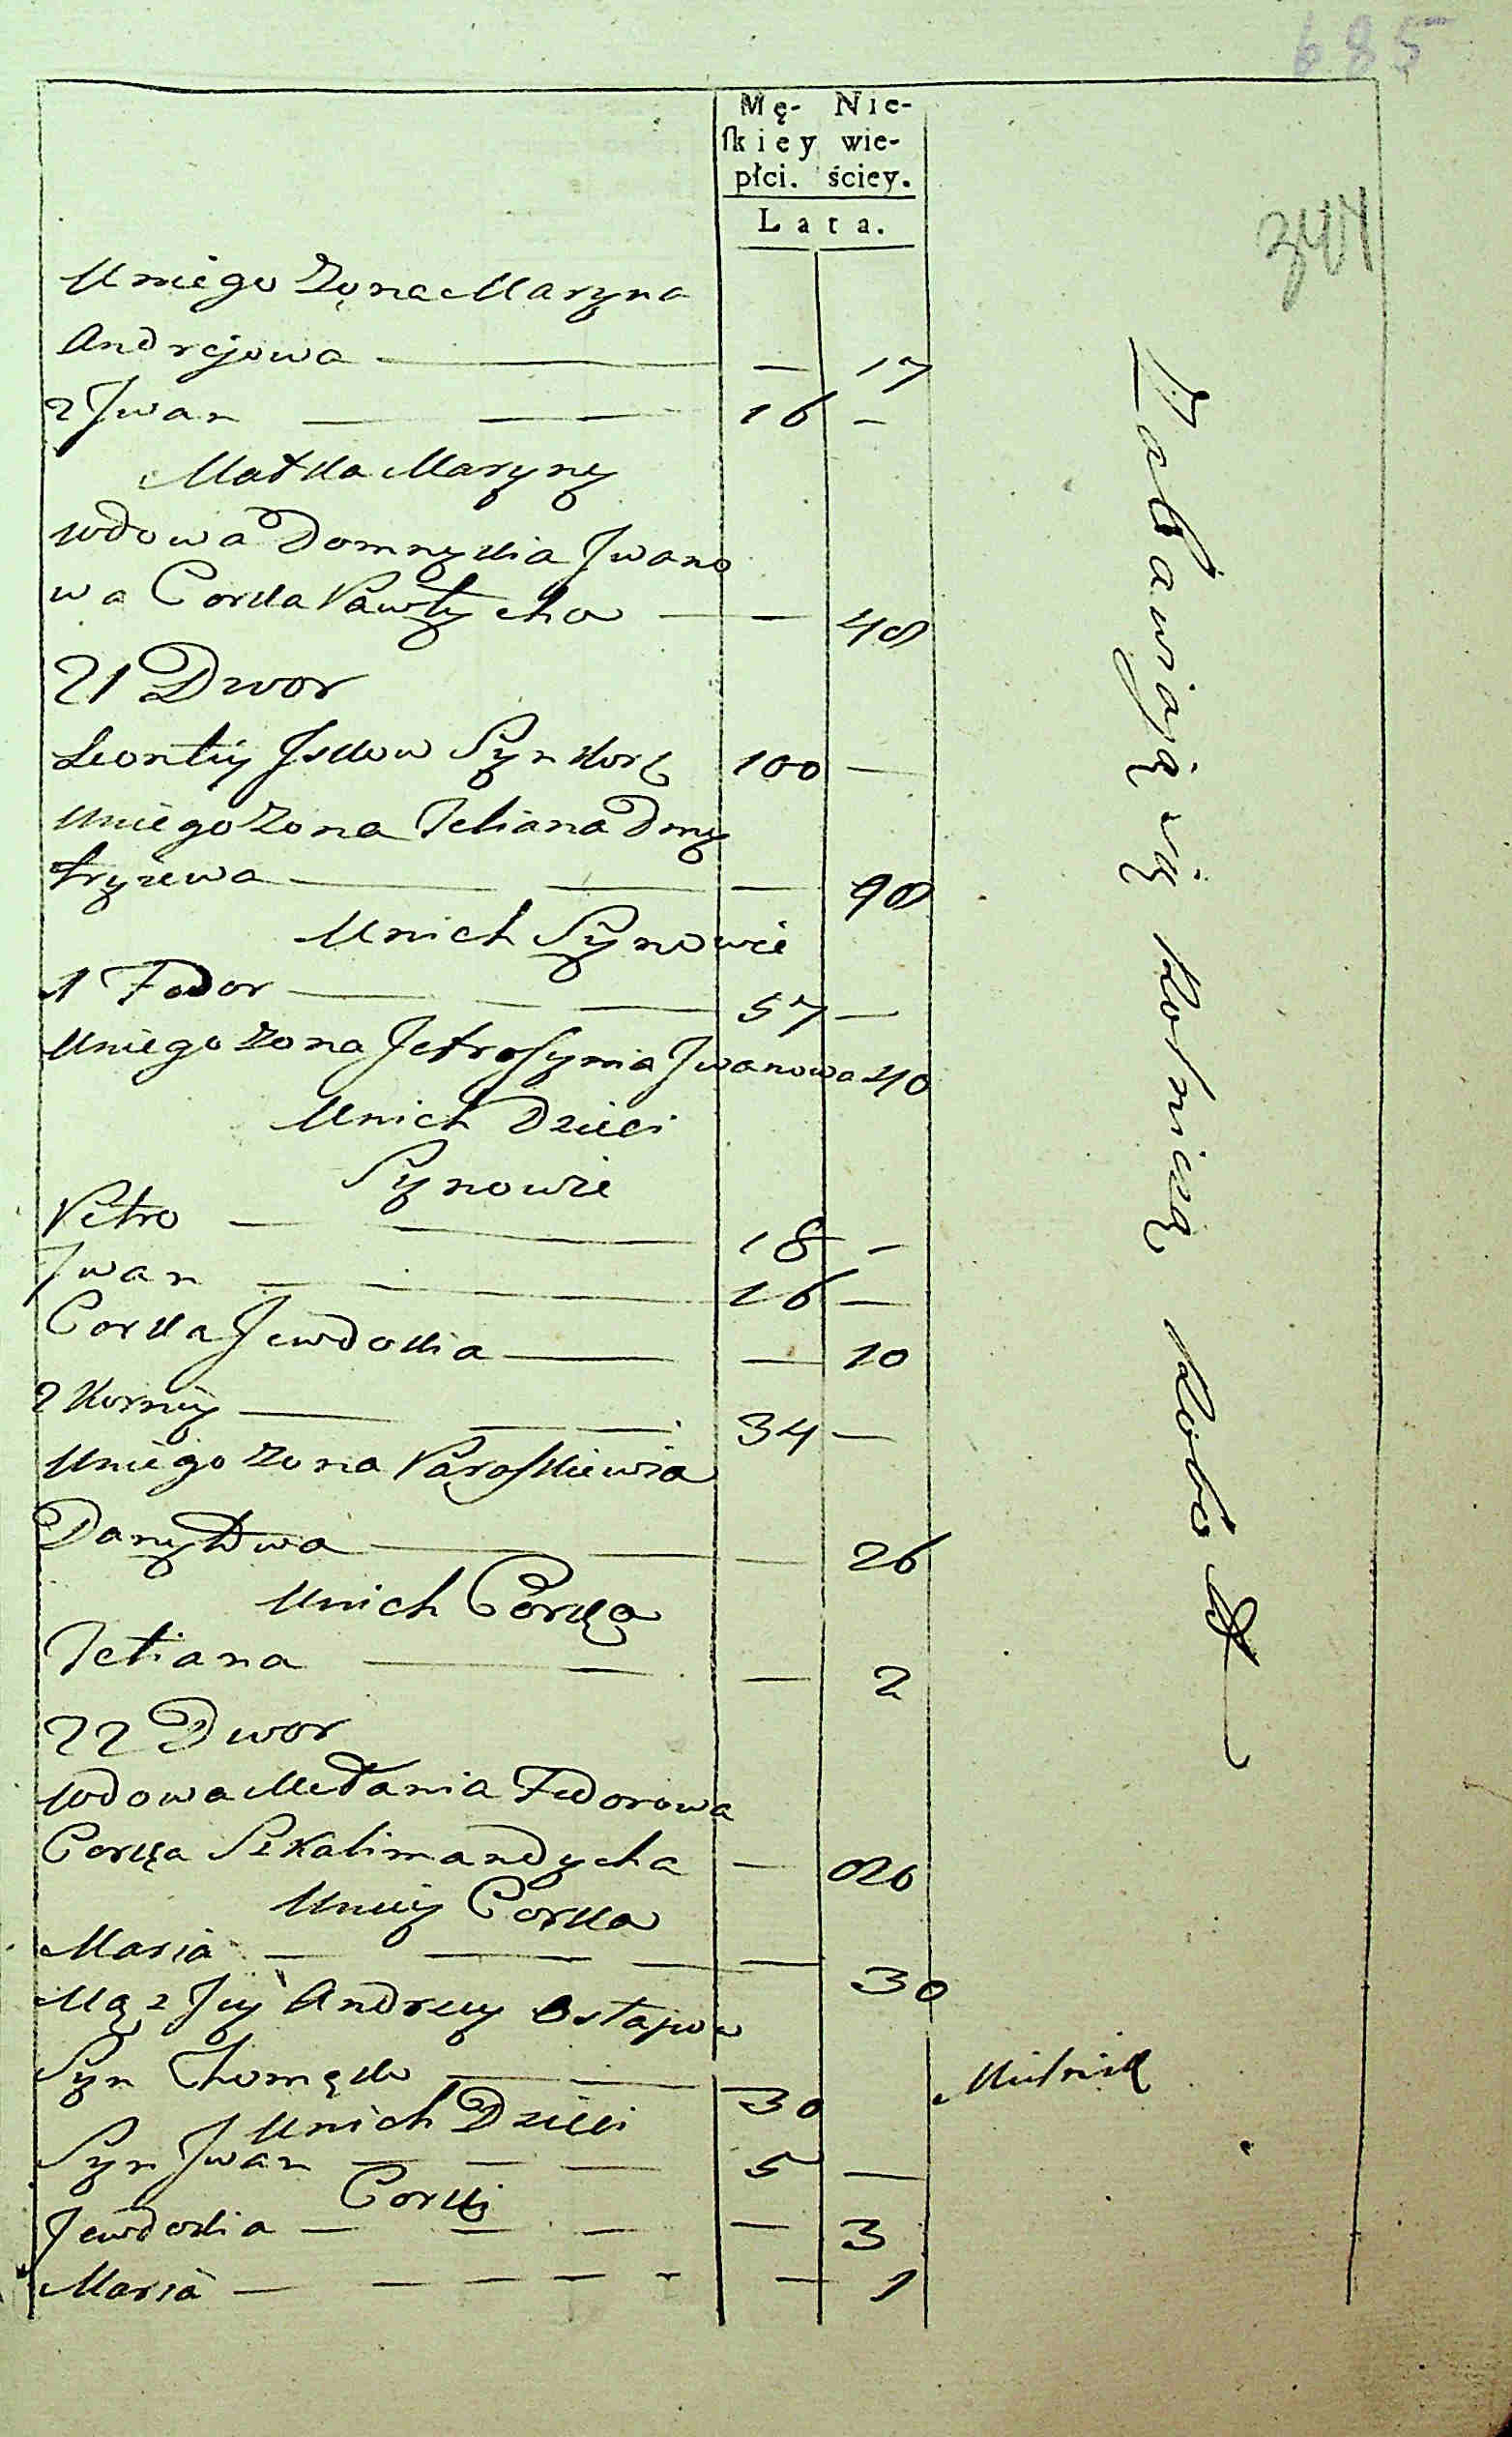 685
344
Mę- Nie-
skiey wie-
płci. ściey.
Lata.
U niego Zona Maryna
Andrejowa — — 17
2 Jwan — — 16 —
Matka Maryny
wdowa Domnykia Jwano
wa Corka Pawłycha — — 48
21 Dwor
Leontiy Jskow Syn 100 —
U niego Zona Tetiana Dmy
tryiewa — — — 98
U nich Synowie
1 Fedor — — — 57 —
U niego Zona Jefrosynia Jwanowa 40
U nich Dzieci
Synowie
Petro — — 18 —
Jwan — — 16 —
Corka Jewdokia — — 10
2 Korniy — — — 34 —
U niego Zona Paraskiewia
Danyłowa — — — 26
U nich Corka
Tetiana — — — 2
22 Dwor
wdowa Melania Fedorowa
Corka Szkalimandycha — 80
U niey Corka
Maria — — — — 30
Mąz Jey Andrey Ostapow
Syn Chomenko — — 30
U nich Dzieci
Syn Jwan — — — 5 —
Corki
Jewdokia — — — — 3
Maria — — — — — — 1
Zabawiają się Rolniczą Robotą
Mielnik